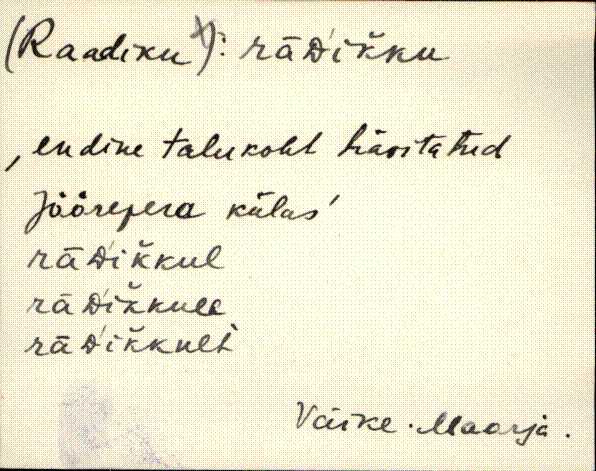 (Raadiku x): rāD́ikku
, endine talukoht hävitatud
Jõõrepera külas'
rāD́ikkul
rāD́ikkulɛ
rāD́ikkult
Väike-Maarja.